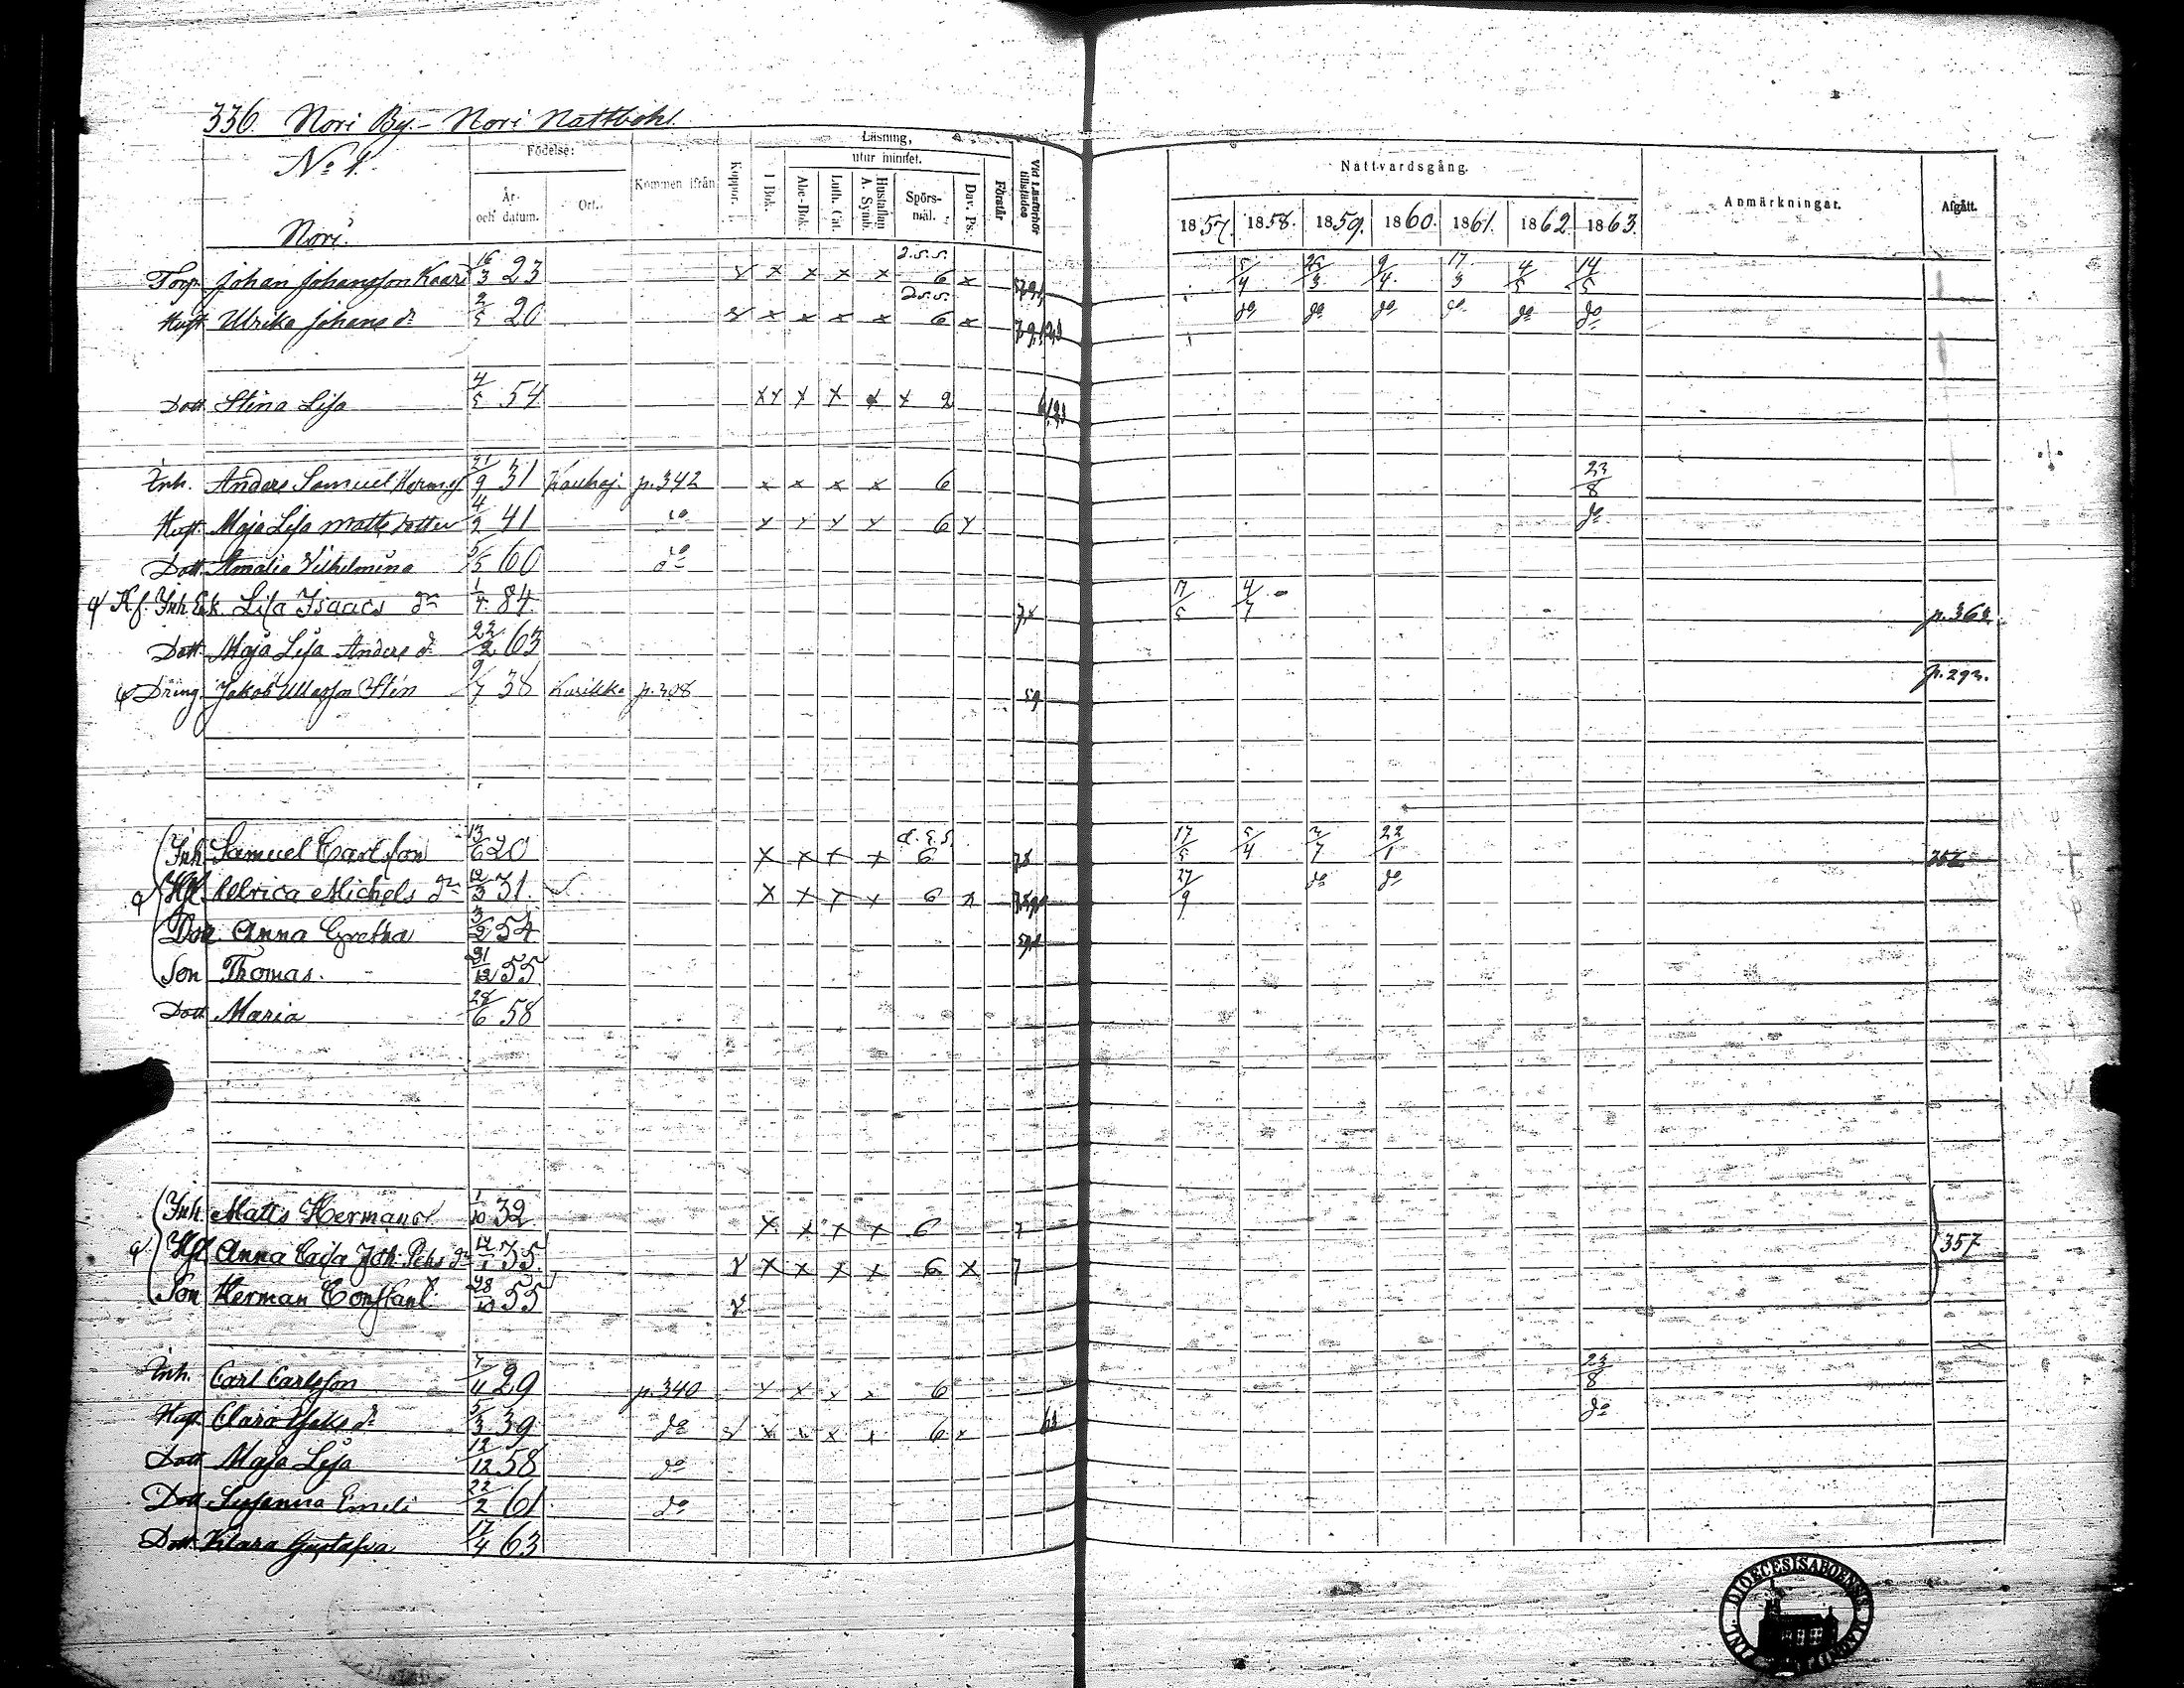 336. Nori By.- Nori Nattbohl.
No 4.
Nori.
Födelse:
År- och datum.
Ort.
Kommen ifrån
Koppor.
Läsning,
I Bok.
utur minnet.
Abc-Bok.
Luth. Cat.
Hustaflan A. Symb.
Spörs-mål.
Dav. Ps.
Förstår
Vid Läsförhör tillstädes
Nattvardsgång.
1857. 1858. 1859. 1860. 1861. 1862. 1863.
Anmärkningar.
Afgått.
Torp. Johan Johansson Kaari 16/3 23 x x x x 6 x 5/4 25/3 9/4 17/3 4/5 14/5
Hust Ulrika Johans dr 2/5 20 x x x x 6 x do do do do do do
Dott Stina Lisa 4/5 54 2
Inh. Anders Samuel Hermss 21/9 31 Kauhaj. p.342 x x x x 6 23/8
Hust. Maja Lisa Matts dotter 4/9 41 do 6 do
Dott. Amalia Vilhelmina 5/5 60 do
Inh. Enk. Lisa Isaacs dr 1/4 84 17/5 4/7 p.363.
Dott. Maja Lisa Anders dr 22/2 63
Dräng. Jakob 9/7 38 Karikka 59 p.293.
Inh. Samuel Carlsson 13/6 20 x x x x 6 17/5 5/4 2/7 22/1
Hst. Ulrica Michels dr 12/3 31. x x x x 6 x 27/9 do do
Dott. Anna Gretha 3/2 54
Son Thomas. 31/12 55
Dott Maria 28/6 58
Inh. Matts Hermans 1/10 32 x x x x 6 7
Hst Anna Cajsa Joh. Pehrs dr 12/1 35 x x x x 6 x 7 357
Son Herman Constant 28/10 55
Inh. Carl Carlsson 7/4 29 p.340 x x x x 6 23/8
Hust. Clara dr 5/3 39 do x x x x 6 x 63 do
Dott Maja Lisa 12/12 58 do
Dott Susanna Emeli 22/2 61. do
Dott Klara Gustafva 17/4 63